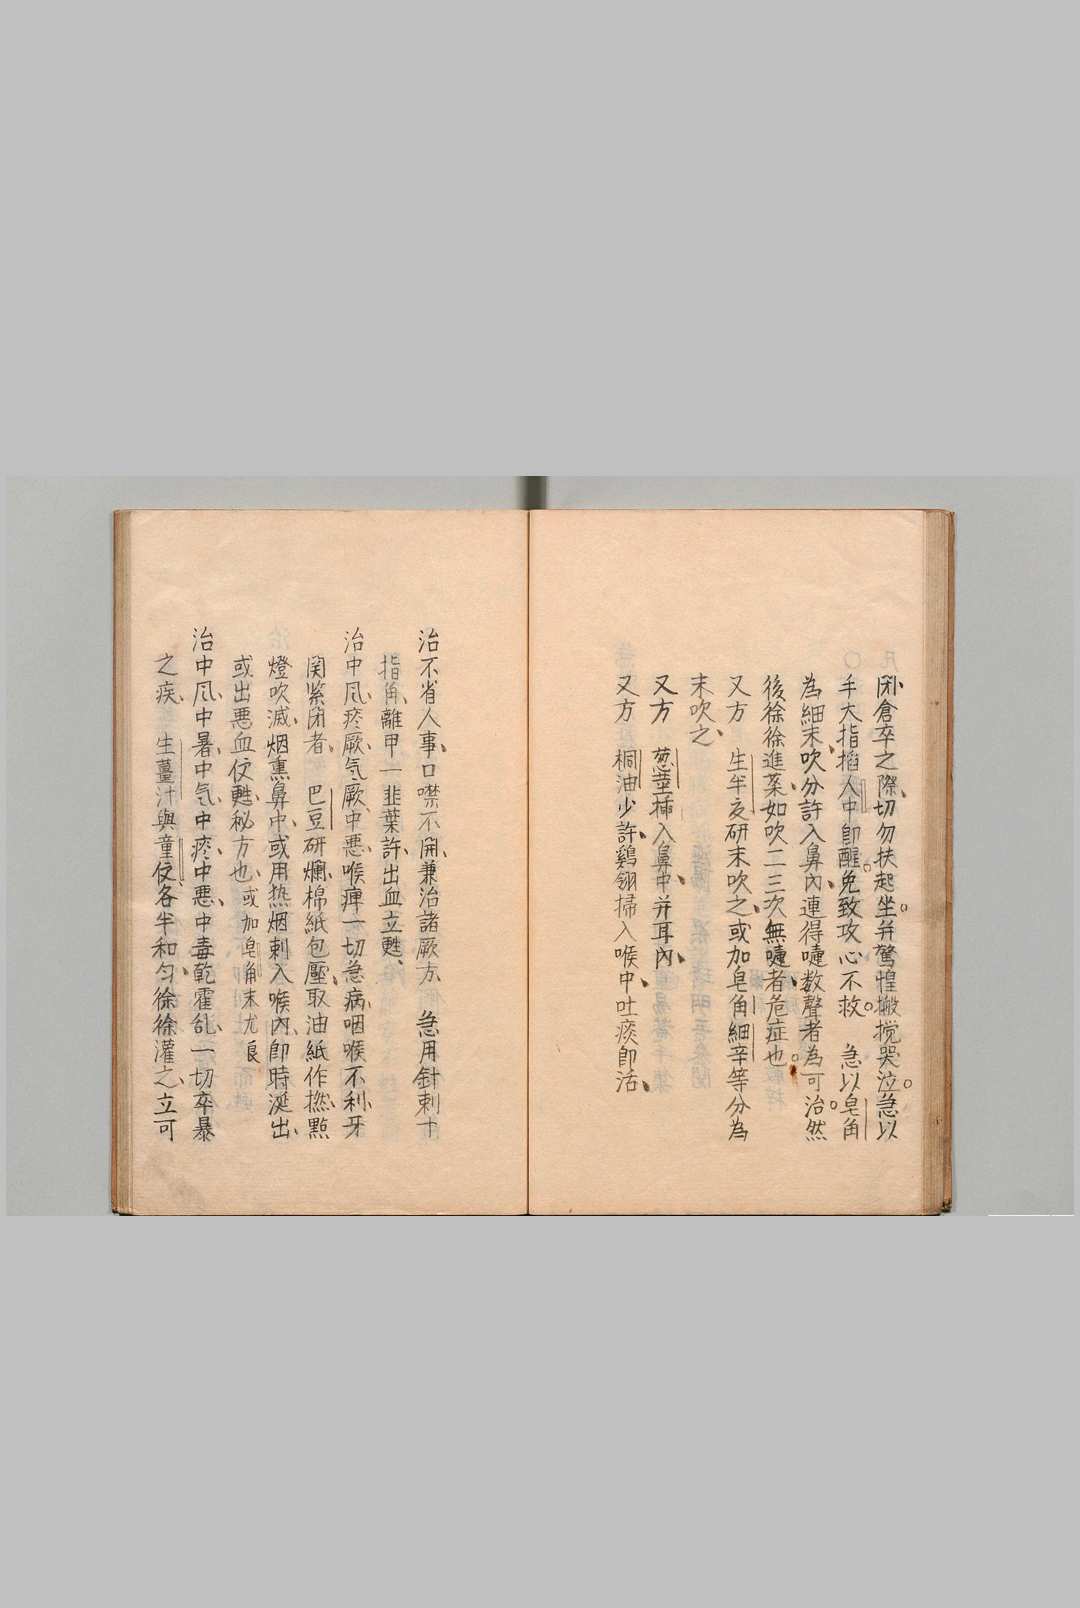 閉倉卒之際切勿扶起坐并驚惶搬撹哭泣急以
手大指掐人中即醒免致攻心不救　急以皂角
為細末吹分許入鼻內連得嚏数聲者為可治然
後徐徐進薬如吹二三次無嚏者危症也
又方　生半夏研末吹之或加皂角細辛等分為
末吹之
又方　葱莖挿入鼻中并耳內
又方　桐油少許鷄翎掃入喉中吐痰即活
治不省人事口噤不開兼治諸厥方　急用針刺十
指角離甲一韭葉許出血立甦
治中風痰厥気厥中悪喉痺一切急病咽喉不利牙
関緊閉者　巴豆研爛棉紙包壓取油紙作撚點
燈吹滅烟熏鼻中或用热烟刺入喉內即時涎出
或出悪血便甦秘方也或加皂角末尤良
治中風中暑中気中痰中悪中毒乾霍乱一切卒暴
之疾　生薑汁與童便各半和匀徐徐灌之立可